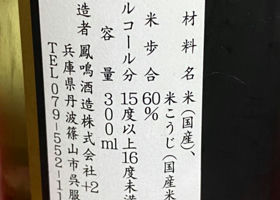 材料名 米(国産)、
米こうじ(国産米
米歩合 60%
ルコール分 15度以上16度未満
容量 300ml
造者 鳳鳴酒造株式会社+2
兵庫県丹波篠山市呉服
TEL079-552-11